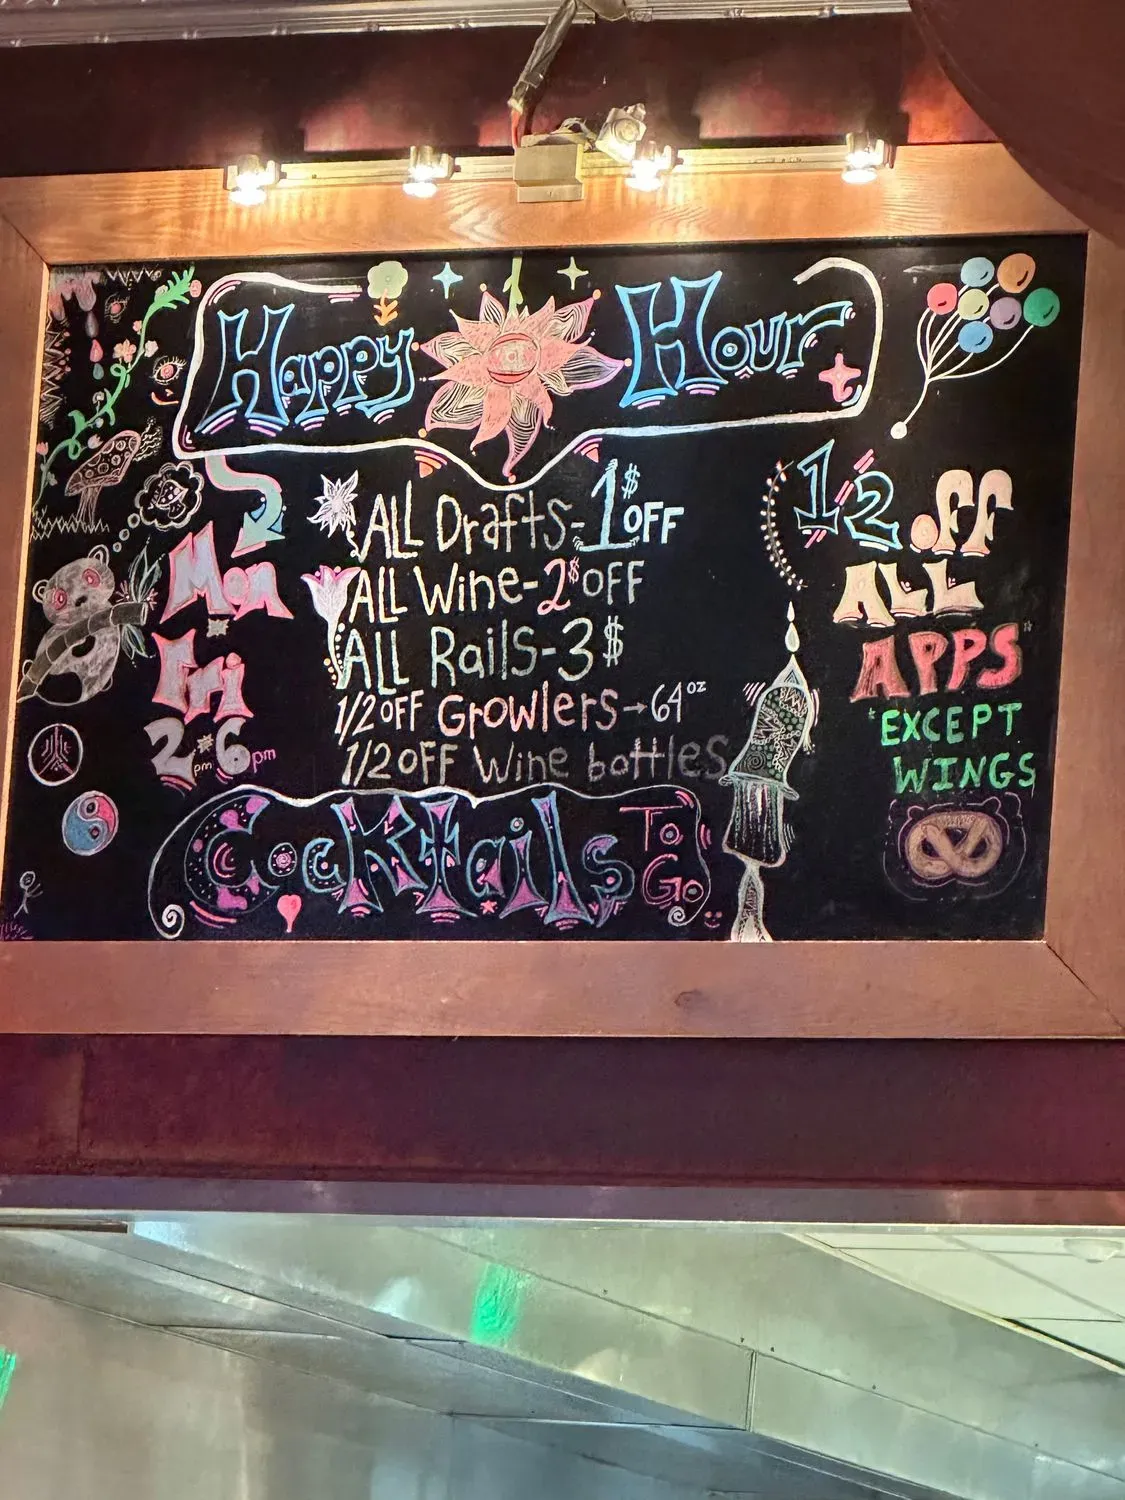 Happy Hour
Mon
Fri
2pm-6pm
ALL Drafts-1$ OFF
ALL Wine-2$ OFF
ALL Rails-3$
1/2 OFF Growlers→64oz
1/2 OFF Wine bottles
Cocktails To Go
1/2 OFF
ALL
APPS*
*EXCEPT
WINGS